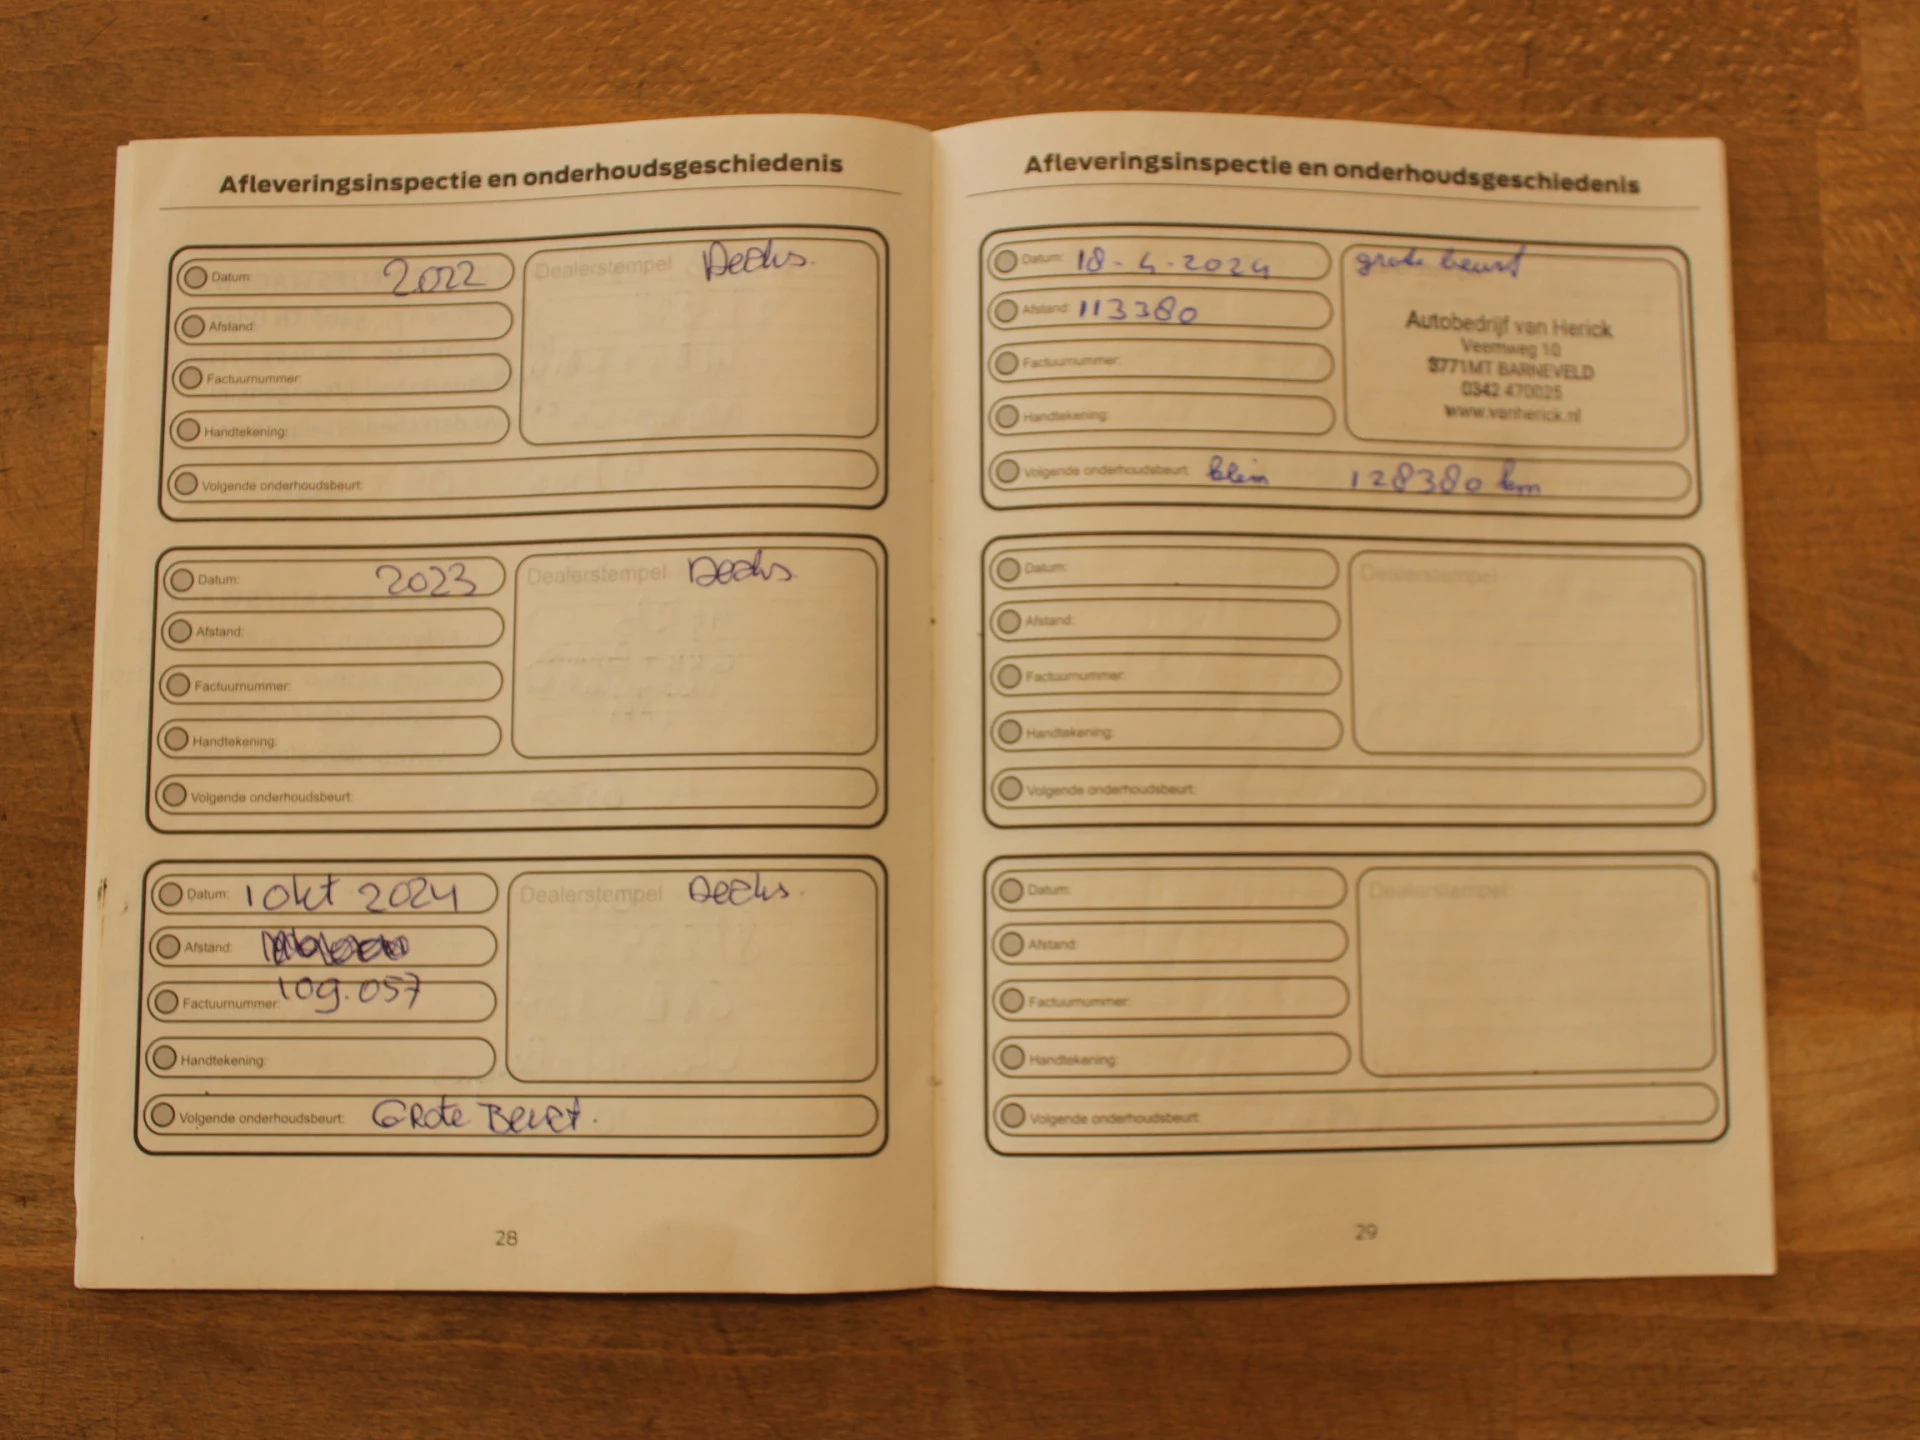 Afleveringsinspectie en onderhoudsgeschiedenis
Datum: 2022
Afstand:
Factuurnummer:
Handtekening:
Dealerstempel
Volgende onderhoudsbeurt:
Datum: 2023
Afstand:
Factuurnummer:
Handtekening:
Dealerstempel
Volgende onderhoudsbeurt:
Datum: 1 okt 2024
Afstand:
109.057
Factuurnummer:
Handtekening:
Dealerstempel
Volgende onderhoudsbeurt: Grote Beurt.
28
Afleveringsinspectie en onderhoudsgeschiedenis
Datum: 18-4-2024
Afstand: 113380
Factuurnummer:
Handtekening:
grote beurt
Autobedrijf van Herick
Veemweg 10
3771MT BARNEVELD
0342 470025
www.vanherick.nl
Volgende onderhoudsbeurt: klein 128380 km
Datum:
Afstand:
Factuurnummer:
Handtekening:
Dealerstempel
Volgende onderhoudsbeurt:
Datum:
Afstand:
Factuurnummer:
Handtekening:
Dealerstempel
Volgende onderhoudsbeurt:
29